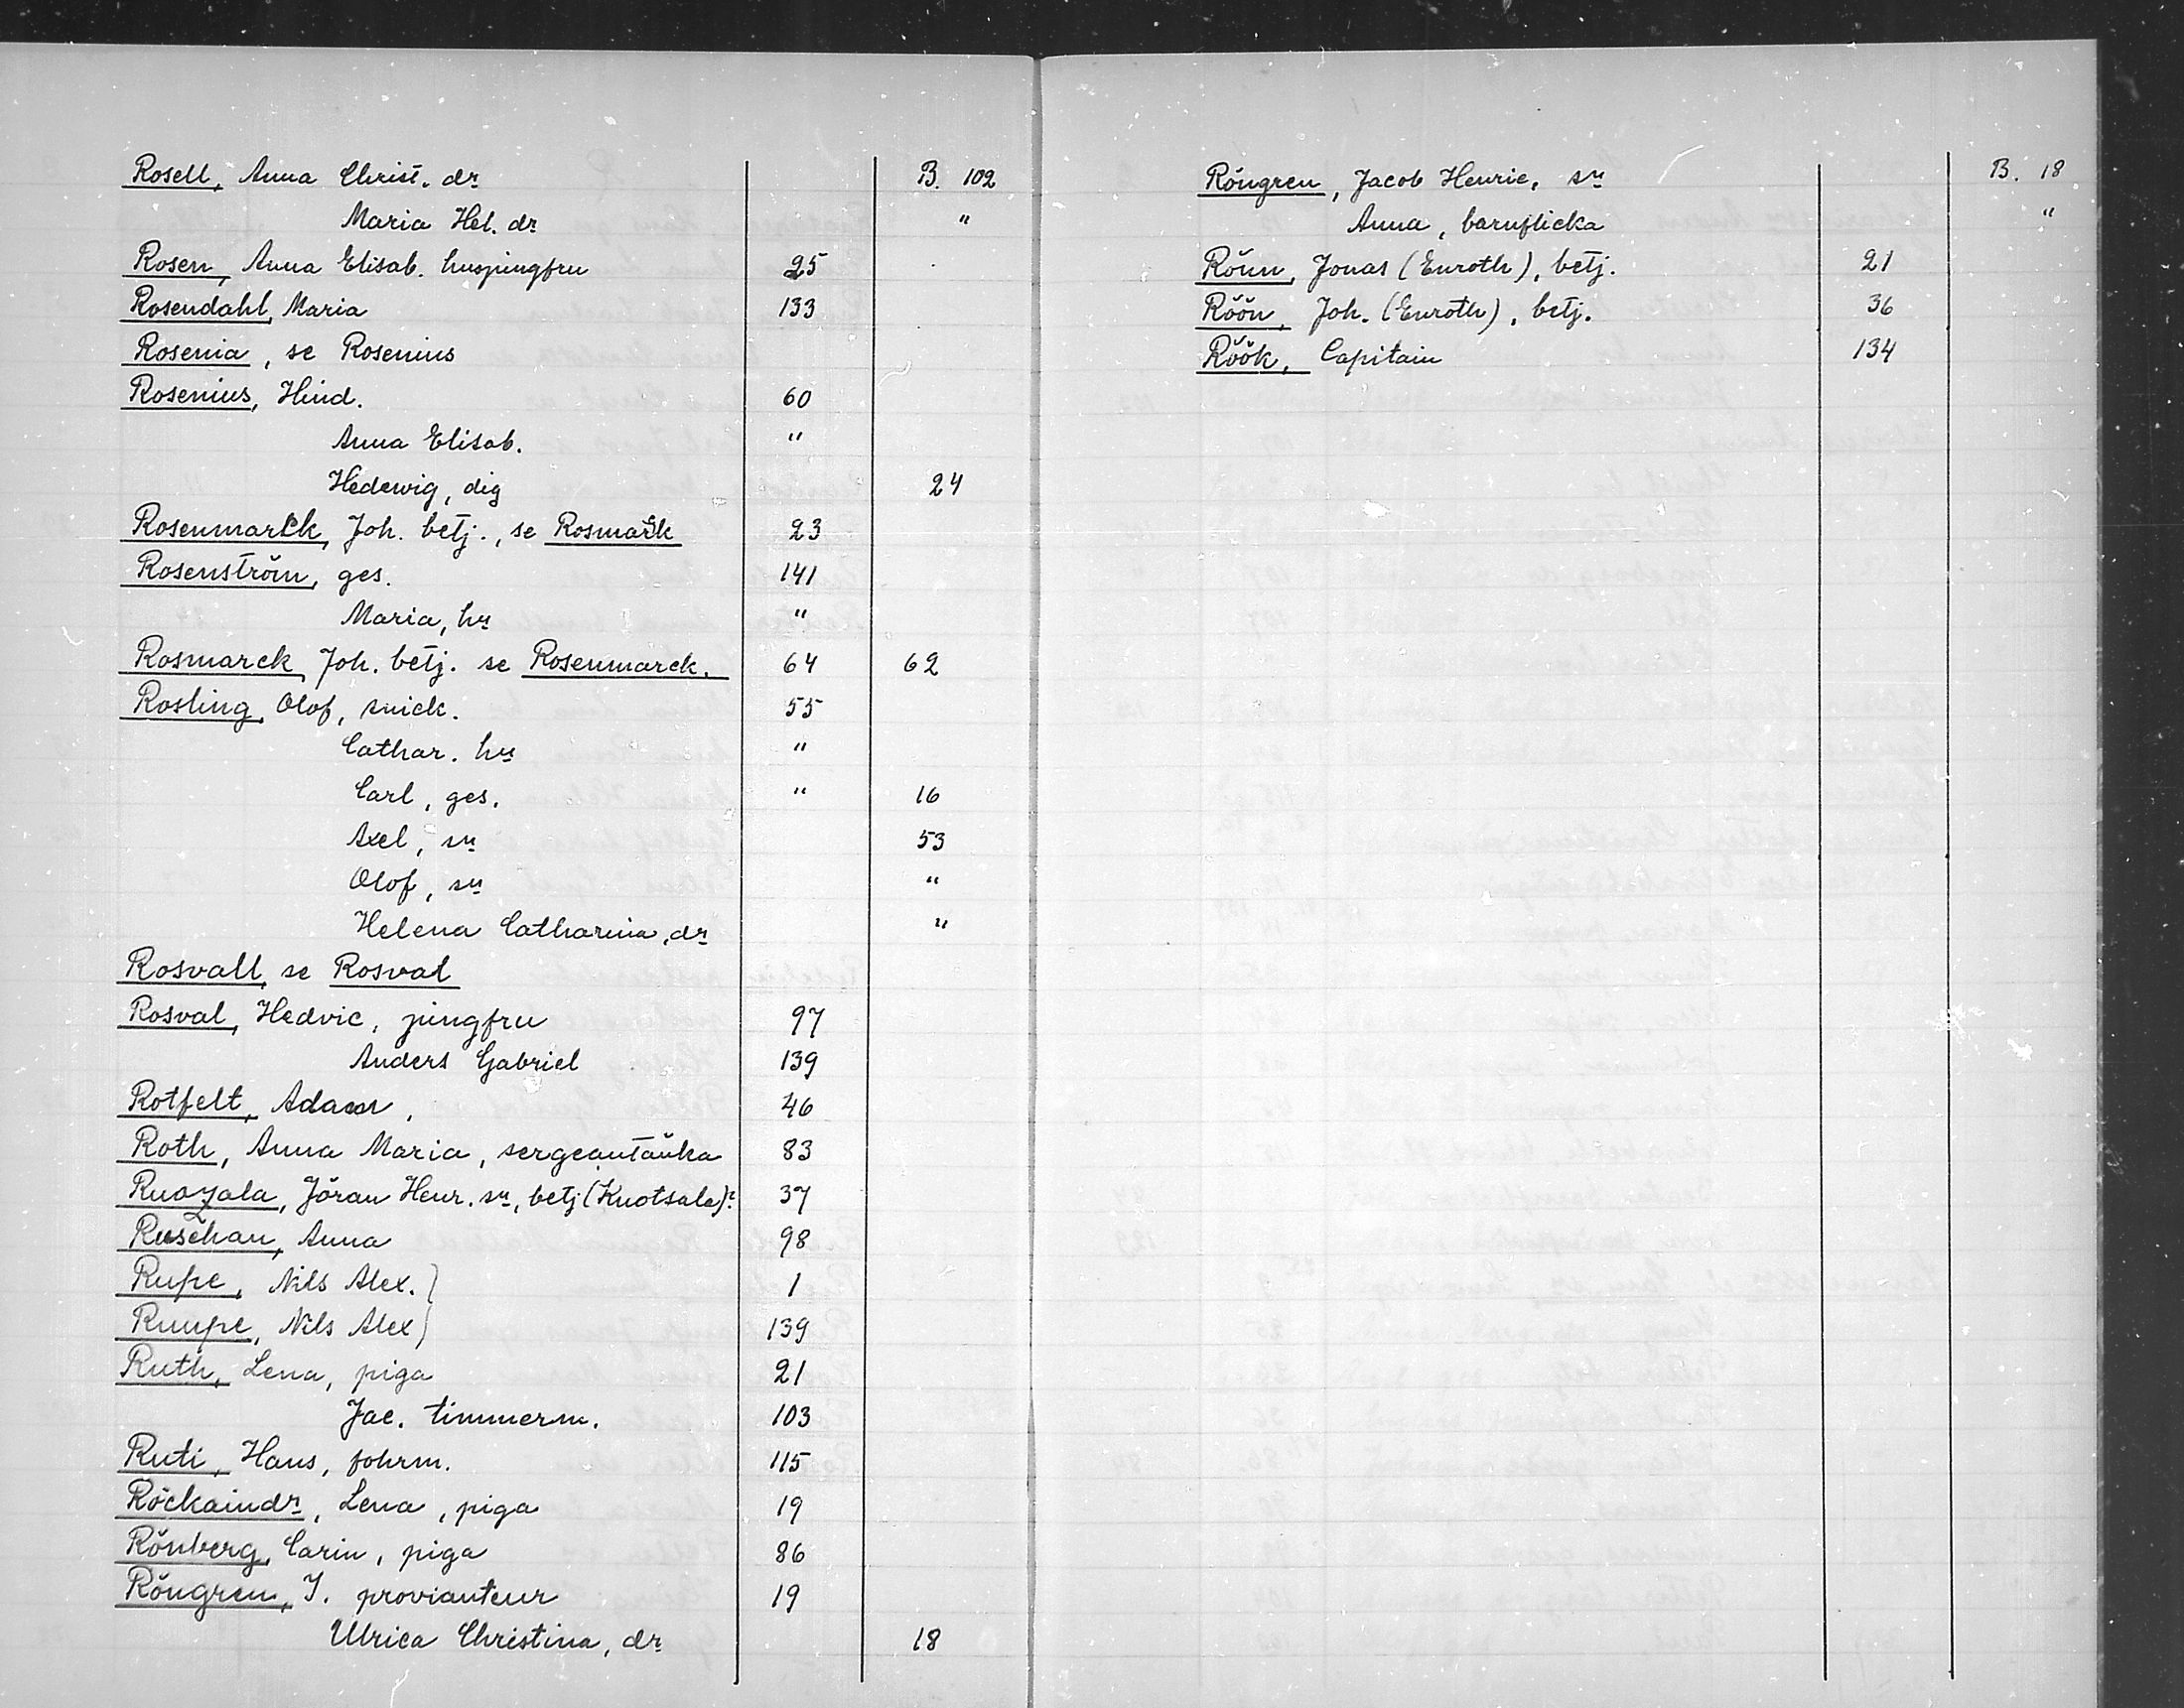 Rosell, Anna Christ. dr B. 102
Maria Hel. dr "
Rosen, Anna Elisab. husjungfru 25
Rosendahl, Maria 133
Rosenia, se Rosenius
Rosenius, Hind. 60
Anna Elisab. "
Hedewig, dig 24
Rosenmarck, Joh. betj., se Rosmarck 23
Rosenström, ges. 141
Maria, hu "
Rosmarck, Joh. betj. se Rosenmarck. 64 62
Rosling, Olof, snick. 55
Cathar. hu "
Carl, ges. " 16
Axel, sn 53
Olof, sn "
Helena Catharina, dr "
Rosvall, se Rosval
Rosval, Hedvic, jungfru 97
Anders Gabriel 139
Rotfelt, Adam, 46
Roth, Anna Maria, sergeantänka 83
Ruozala, Jöran Henr. sn, betj (Knotsala)? 37
Ruschan, Anna 98
Rupe, Nils Alex. } 1
Ruupe, Nils Alex } 139
Ruth, Lena, piga 21
Jac. timmerm. 103
Ruti, Hans, fohrm. 115
Röckaindr, Lena, piga 19
Rönberg, Carin, piga 86
Röngren, J. provianteur 19
Ulrica Christina, dr 18
Röngren, Jacob Henric, sn B. 18
Anna, barnflicka "
Rönn, Jonas (Enroth), betj. 21
Röön, Joh. (Enroth), betj. 36
Röök, Capitain 134